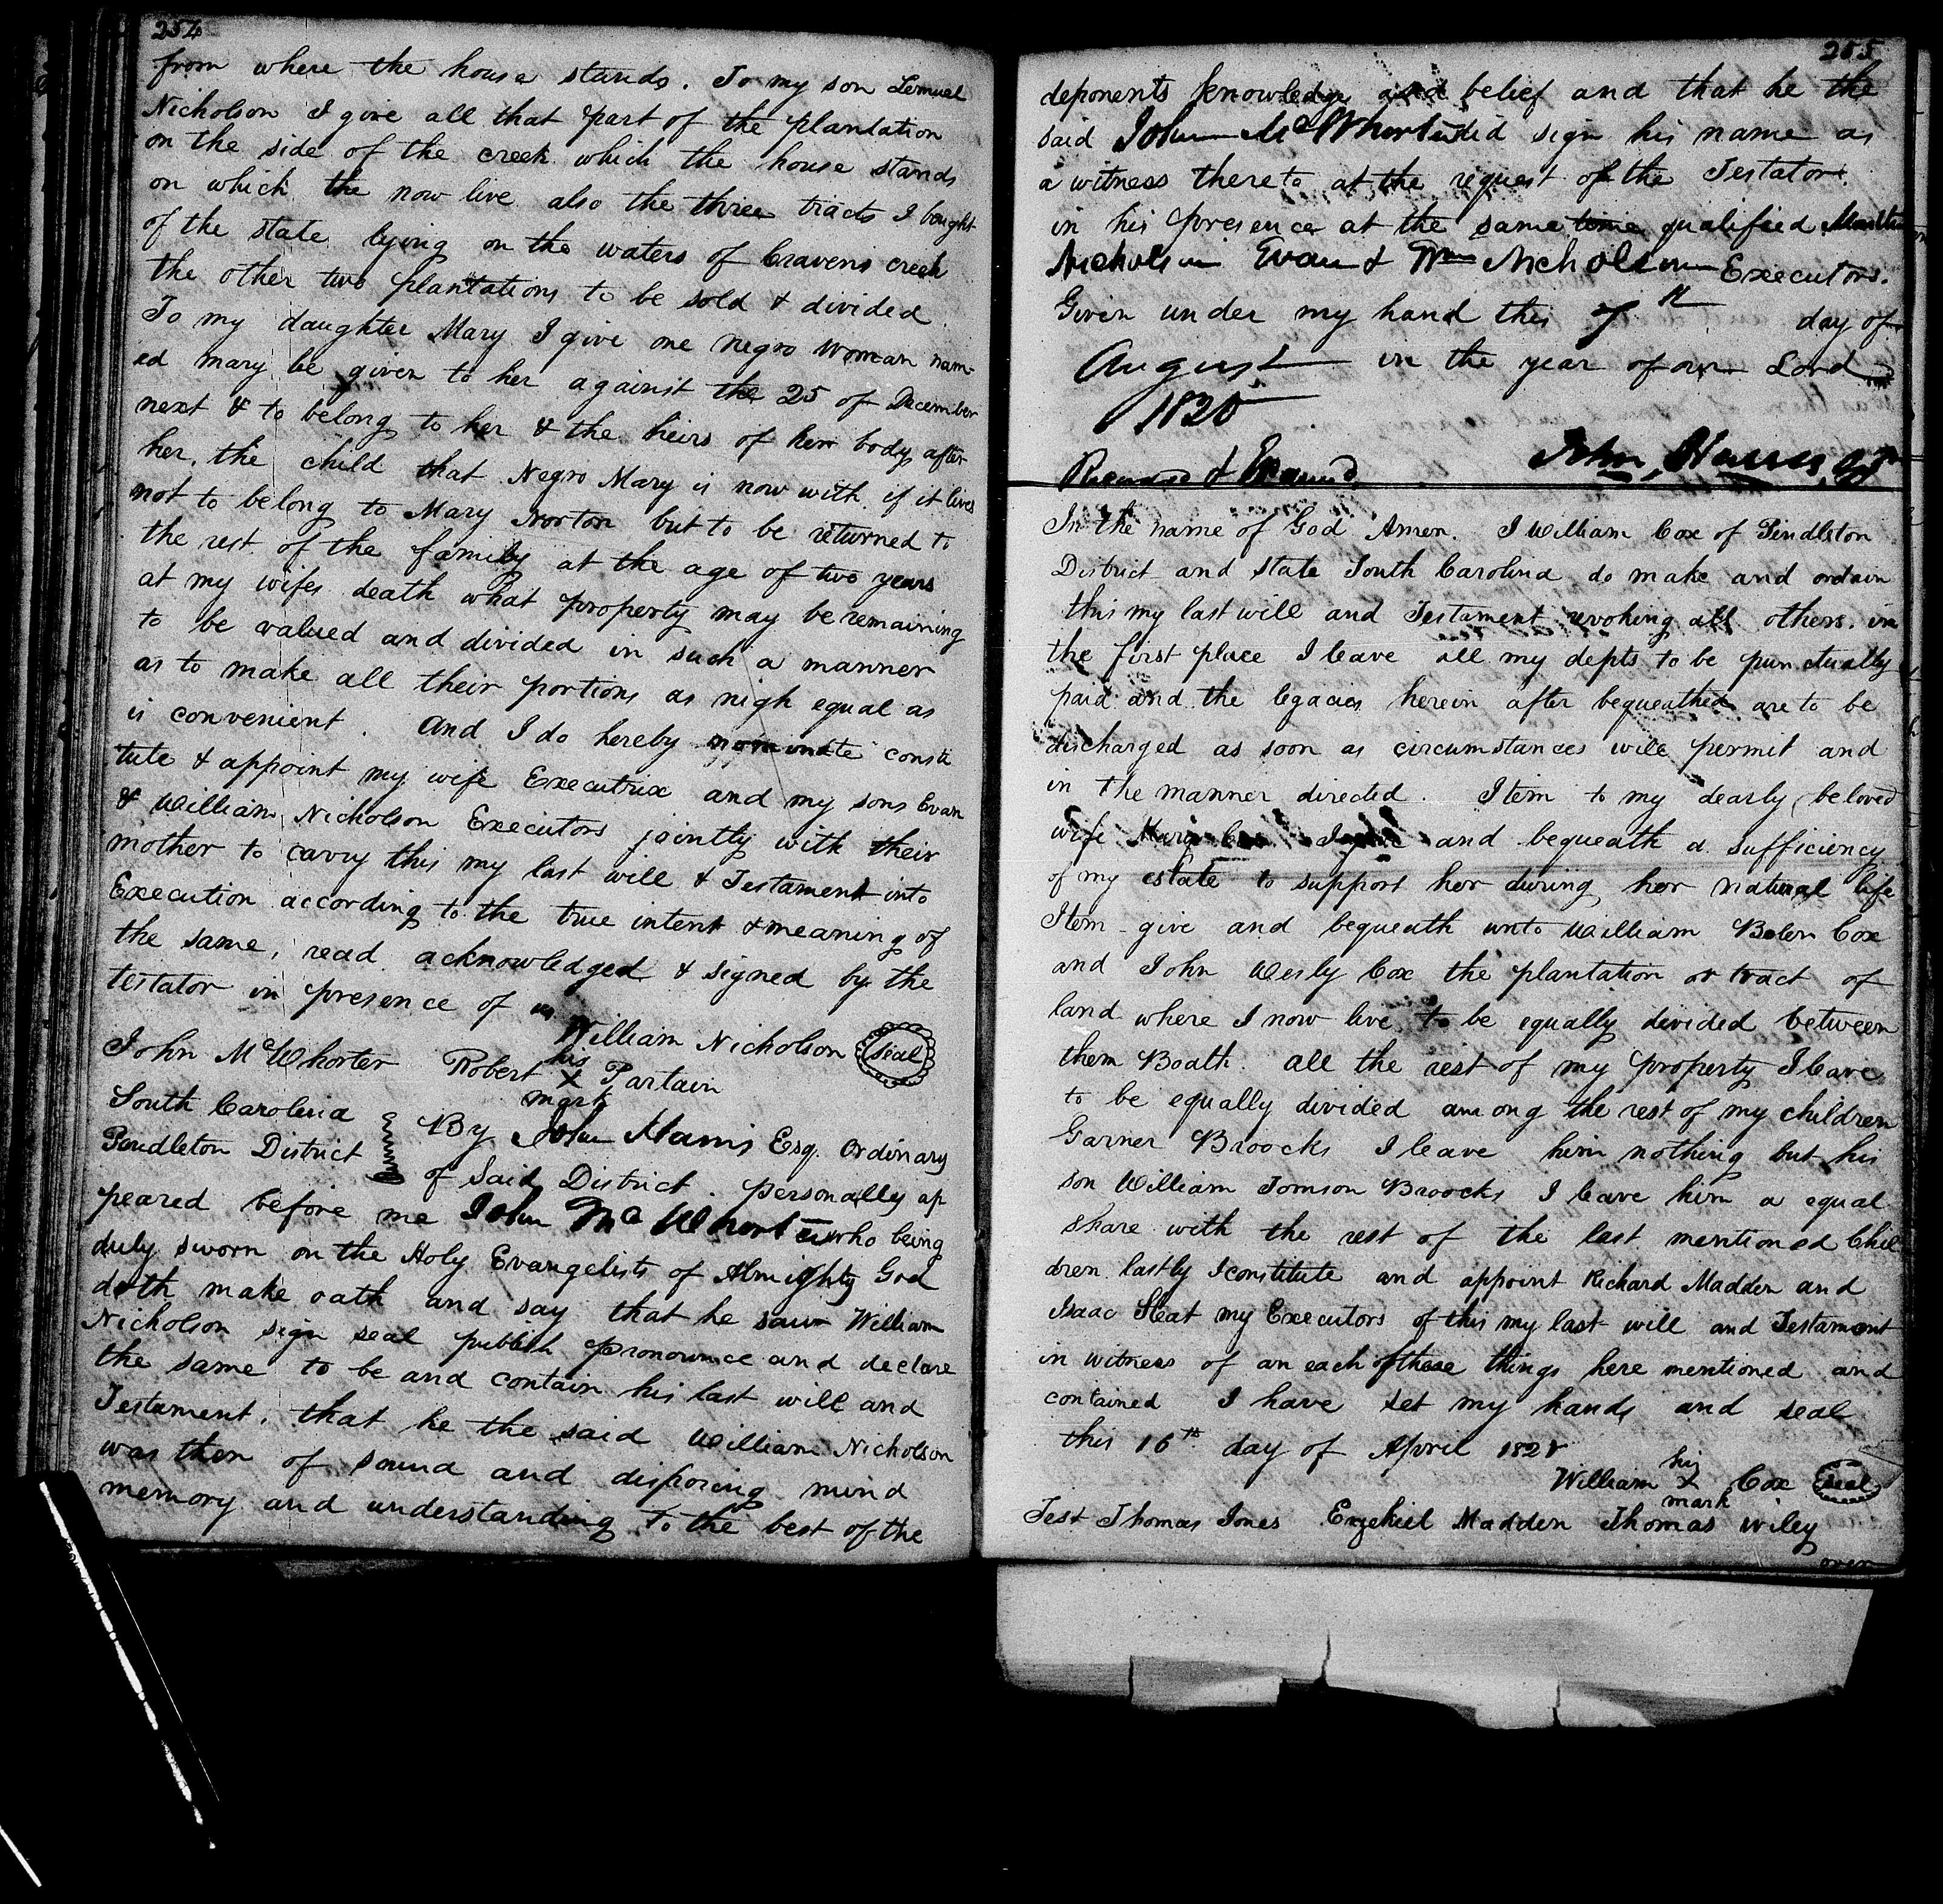 254
from where the house stands. To my son Lemuel
Nicholson I give all that part of the plantation
on the side of the creek which the house stands
on which the now live also the three tracts I bought
of the state lying on the waters of Cravens creek
the other two plantations to be sold & divided
To my daughter Mary I give one negro woman nam-
ed mary be given to her against the 25 of December
next & to belong to her & the heirs of her body after
her, the child that Negro Mary is now with if it lives
not to belong to Mary Norton but to be returned to
the rest of the family at the age of two years
at my wifes death what property may be remaining
to be valued and divided in such a manner
as to make all their portions as nigh equal as
is convenient. And I do hereby nominate consti
tute & appoint my wife Executrix and my sons Evan
& William Nicholson Executors jointly with their
mother to carry this my last will & Testament into
Execution according to the true intent & meaning of
the same, read acknowledged & signed by the
testator in presence of us
William Nicholson seal
John McWhorter Robert his X mark Partain
South Carolina
Pendleton District
By John Harris Esq. Ordinary
of Said District. personally ap
peared before me John McWhorter who being
duly sworn on the Holy Evangelists of Almighty God
doth make oath and say that he saw William
Nicholson sign seal publish pronounce and declare
the same to be and contain his last will and
Testament, that he the said William Nicholson
was then of sound and disposing mind
memory and understanding to the best of the
255
deponents knowledge and belief and that he the
said John McWhorter did sign his name as
a witness thereto at the request of the Testator
in his presence at the same time qualified
Nicholson Evan & Wm Nicholson Executors.
Given under my hand this 7th day of
August in the year of our Lord
1820
John Harris
Recorded & Examd
In the name of God Amen. I William Cox of Pendleton
District and state South Carolina do make and ordain
this my last will and Testament revoking all others. in
the first place I leave all my depts to be punctually
paid and the legacies herein after bequeathed are to be
discharged as soon as circumstances will permit and
in the manner directed. Item to my dearly beloved
wife Mary Cox I give and bequeath a sufficiency
of my estate to support her during her natural life
Item give and bequeath unto William Bolen Cox
and John Wesly Cox the plantation or tract of
land where I now live to be equally divided between
them Boath. all the rest of my property I leave
to be equally divided among the rest of my children
Garner Broocks I leave him nothing but his
son William Tomson Broocks I leave him a equal
share with the rest of the last mentioned Chil
dren. lastly I constitute and appoint Richard Madden and
Isaac Sleat my Executors of this my last will and Testament
in witness of an each of these things here mentioned and
contained I have set my hand and seal
this 16th day of April 182
William his X mark Cox seal
Test Thomas Jones Ezekiel Madden Thomas Wiley
over